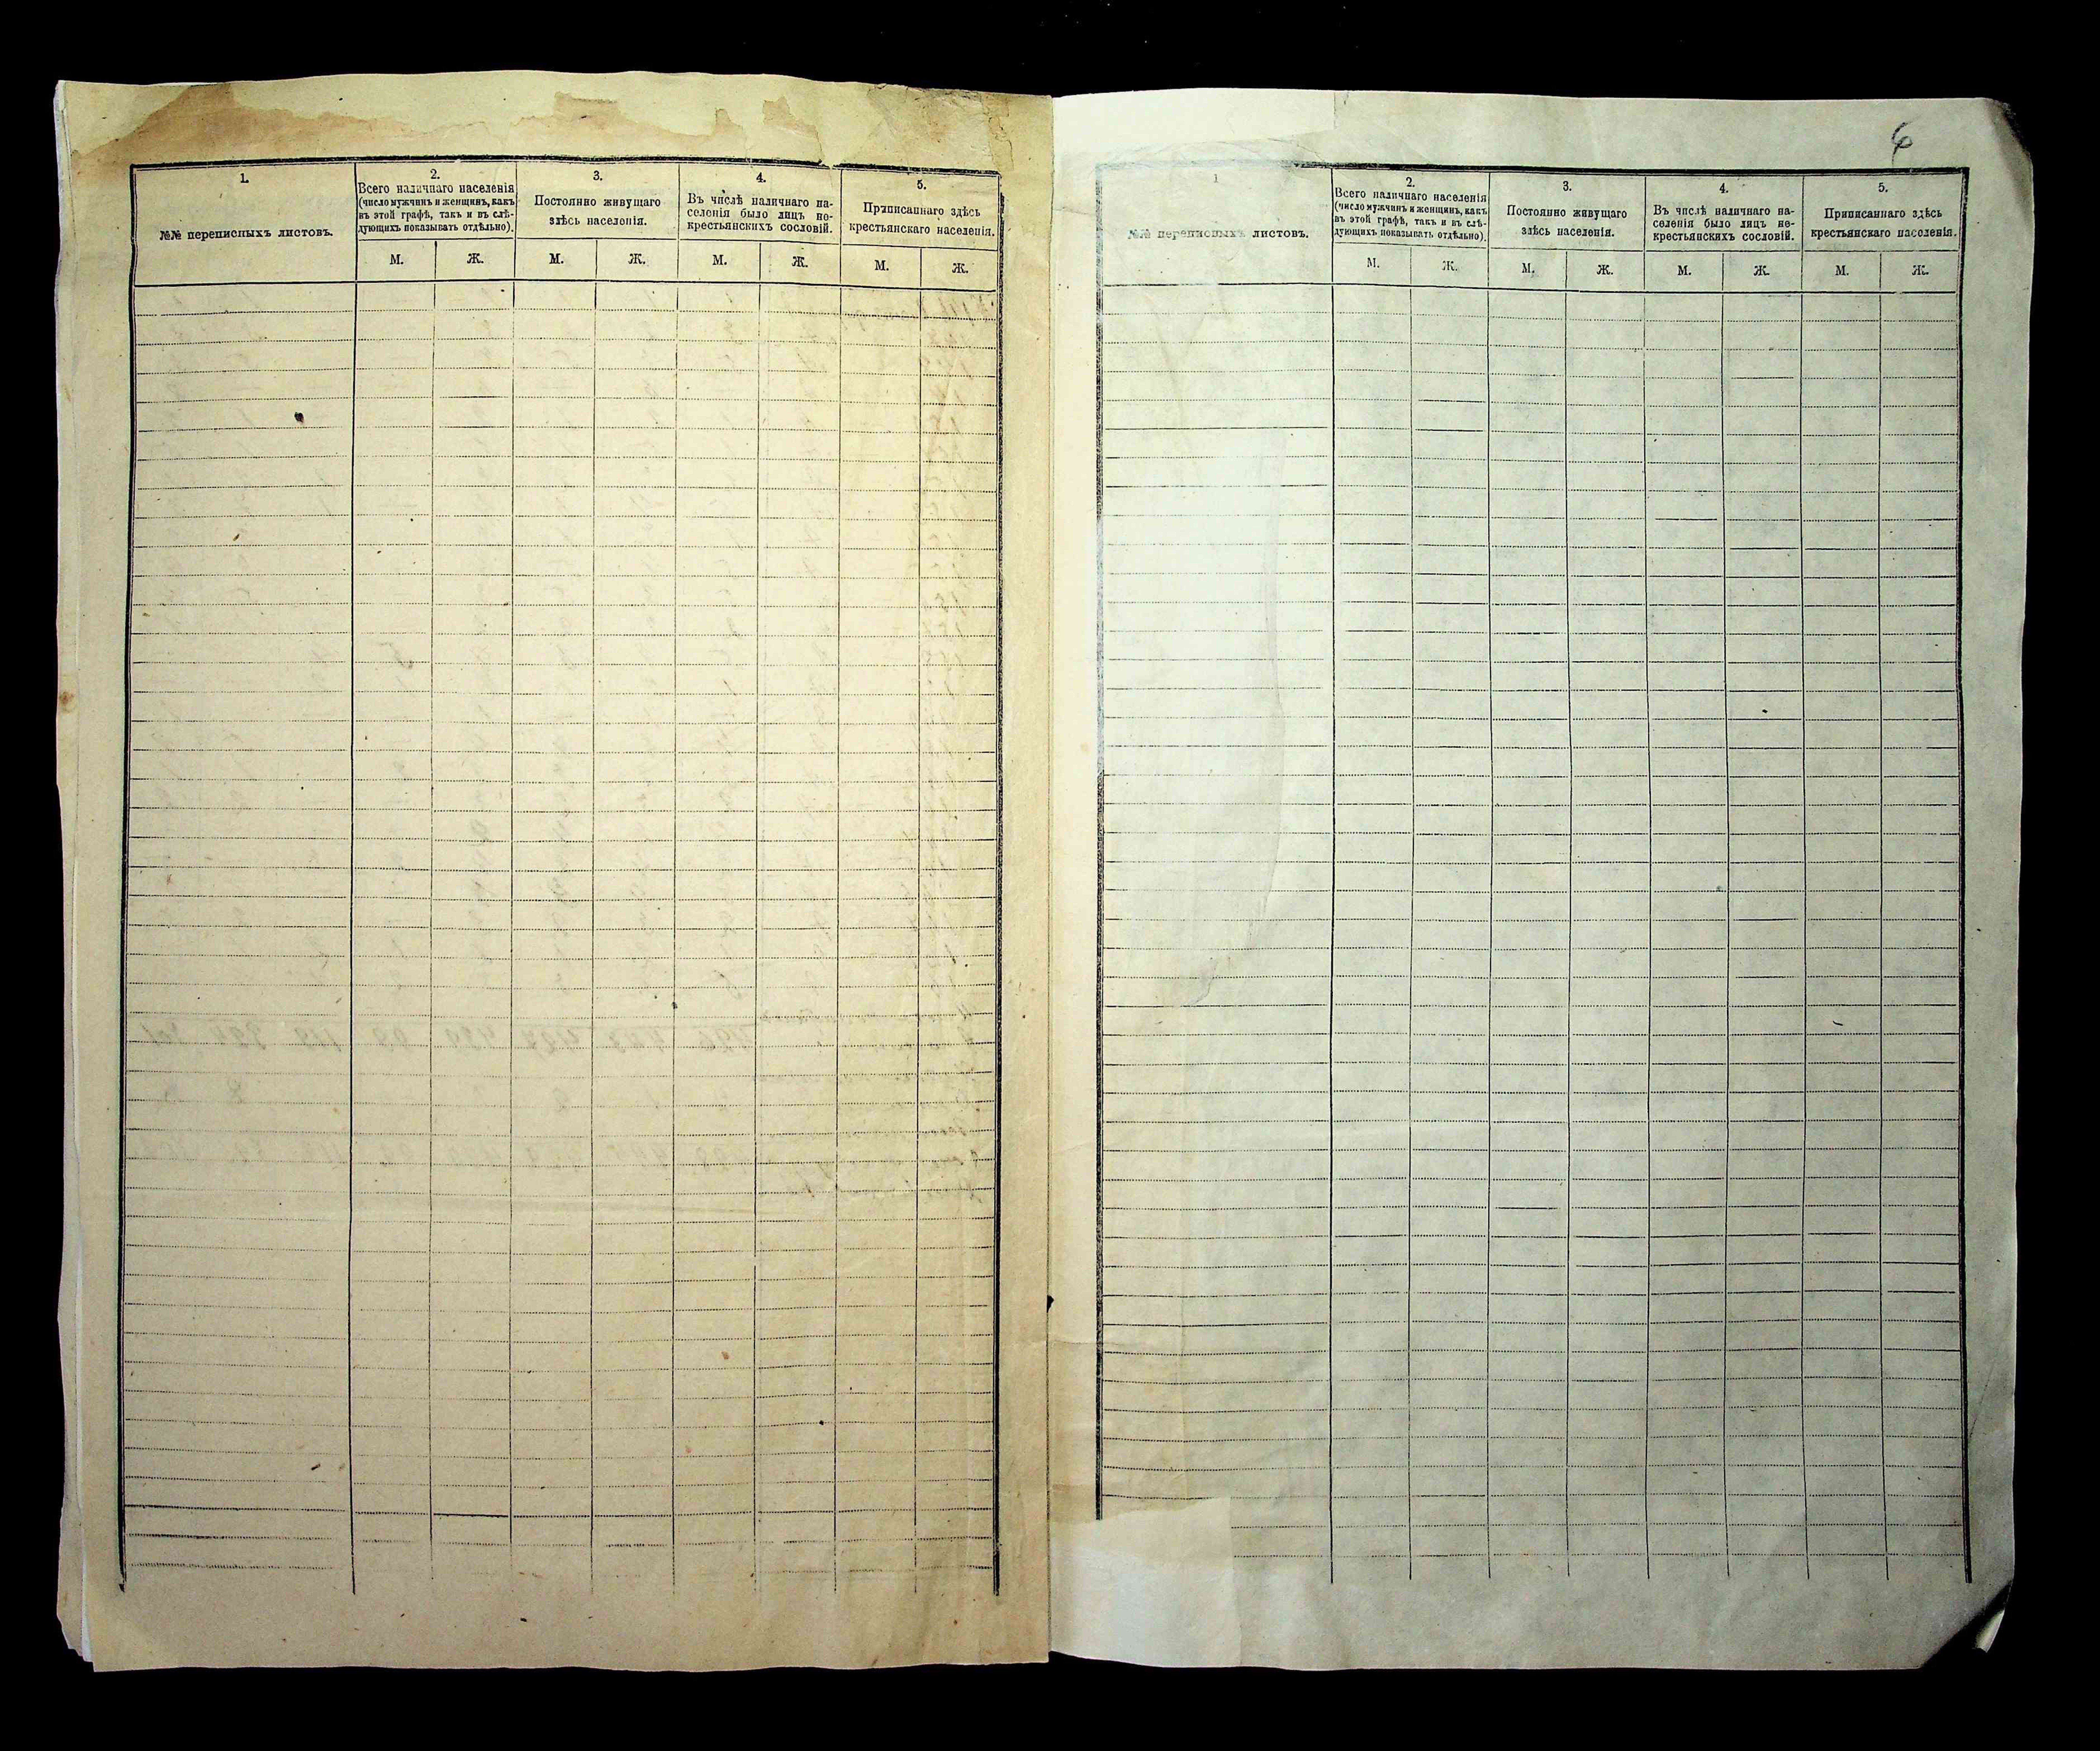 1.
№№ переписныхъ листовъ.
2.
Всего наличнаго населенія
(число мужчинъ и женщинъ, какъ
въ этой графѣ, такъ и въ слѣ-
дующихъ показывать отдѣльно).
М. Ж.
3.
Постоянно живущаго
здѣсь населенія.
М. Ж.
4.
Въ числѣ наличнаго на-
селенія было лицъ не-
крестьянскихъ сословій.
М. Ж.
5.
Приписаннаго здѣсь
крестьянскаго населенія.
М. Ж.
6
1
№№ переписныхъ листовъ.
2.
Всего наличнаго населенія
(число мужчинъ и женщинъ, какъ
въ этой графѣ, такъ и въ слѣ-
дующихъ показывать отдѣльно).
М. Ж.
3.
Постоянно живущаго
здѣсь населенія.
М. Ж.
4.
Въ числѣ наличнаго на-
селенія было лицъ не-
крестьянскихъ сословій.
М. Ж.
5.
Приписаннаго здѣсь
крестьянскаго населенія.
М. Ж.